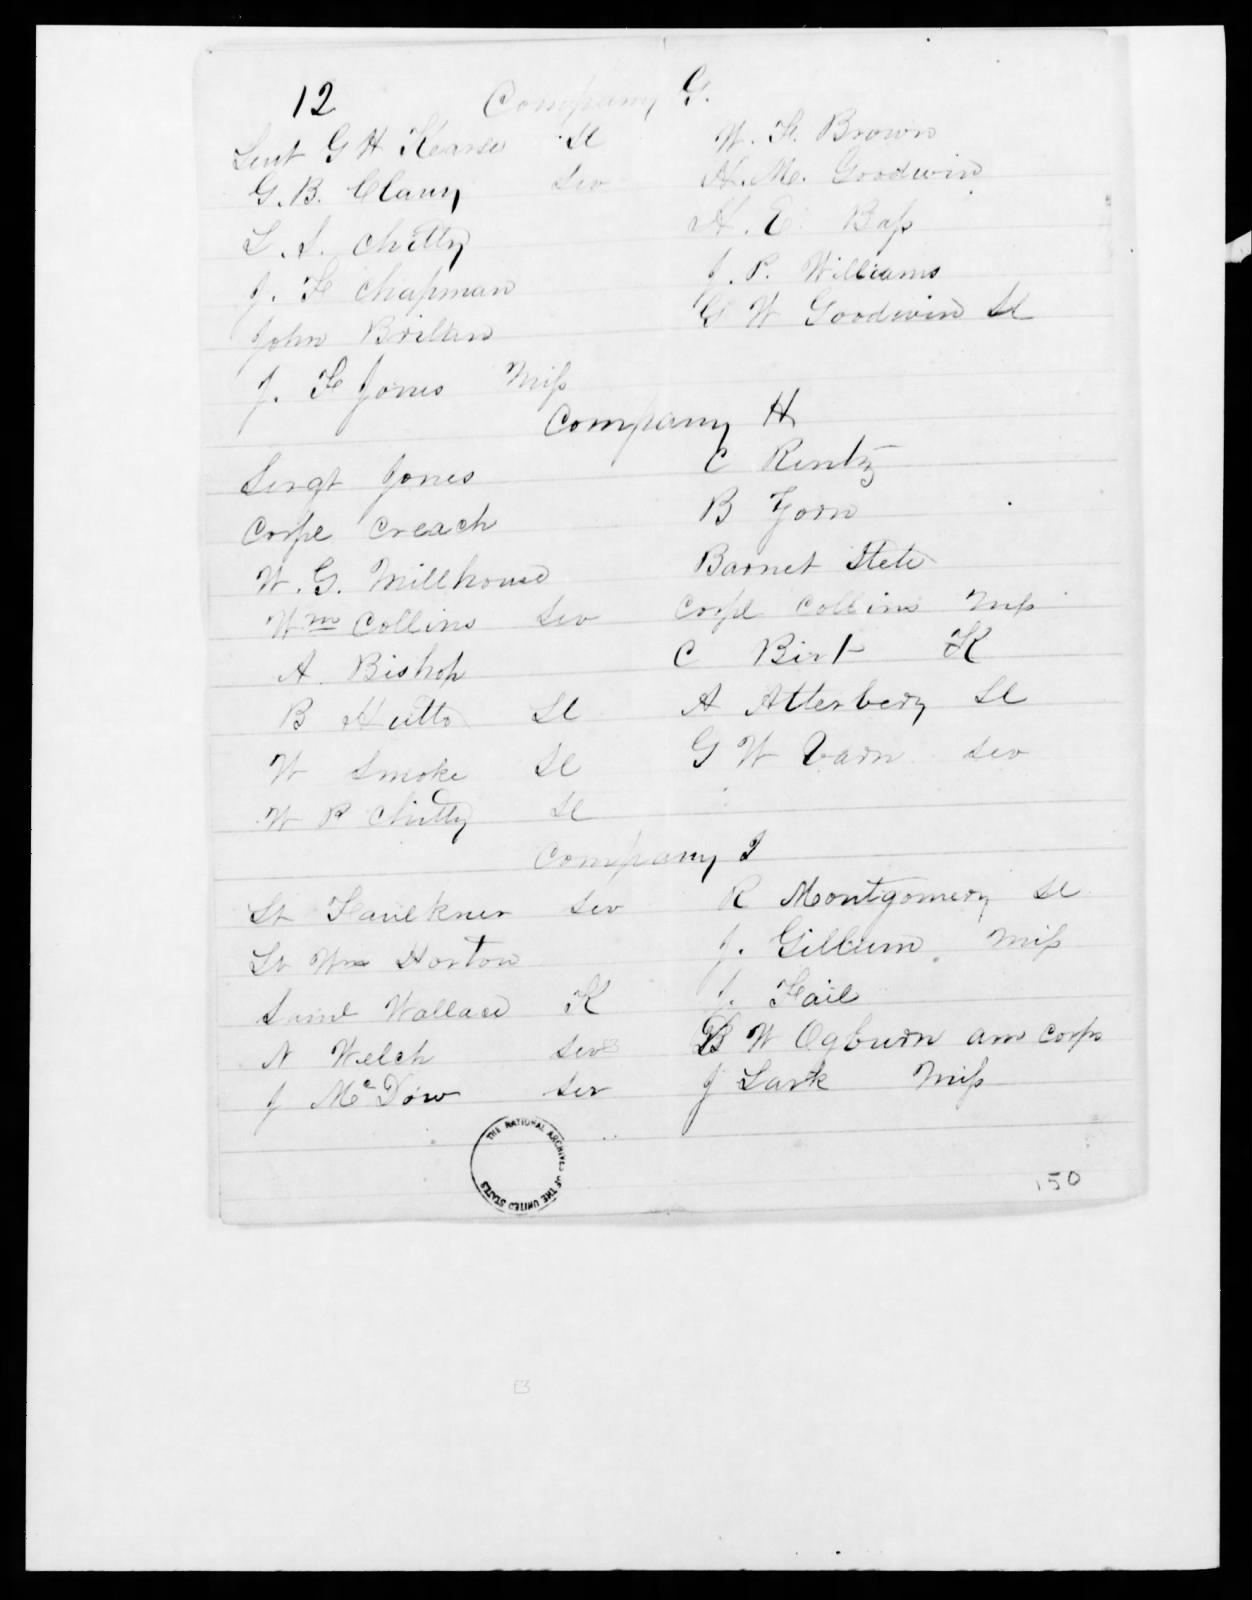 12 Company G.
Lieut G H Kearse Sl
G. B. Clany Sev
L. S. Chitty
J. F Chapman
John Brittan
J. F Jones Miss
W. F. Brown
H. M. Goodwin
H. E. Bass
J. P. Williams
G W Goodwin Sl
Company H
Sergt Jones
Corpl Creach
W. G. Millhouse
Wm Collins Sev
A. Bishop
B Hutto Sl
W Smoke Sl
W P Chitty Sl
C Rentz
B Zorn
Barnet
Corpl Collins Miss
C Birt K
A Atterbery Sl
G W Varn Sev
Company I
Lt Faulkner Sev
Lt Wm Horton
Saml Wallace K
N Welch Sev
J McDow Sev
R Montgomery Sl
J. Gillum Miss
J. Fail
B W Ogburn am Corps
J Lark Miss
THE NATIONAL ARCHIVES OF THE UNITED STATES
150